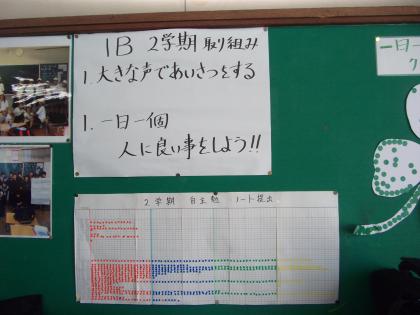 1B 2学期 取り組み
1. 大きな声であいさつをする
1. 一日一個
人に良い事をしよう!!
一日一
2学期 自主勉 ノート提出